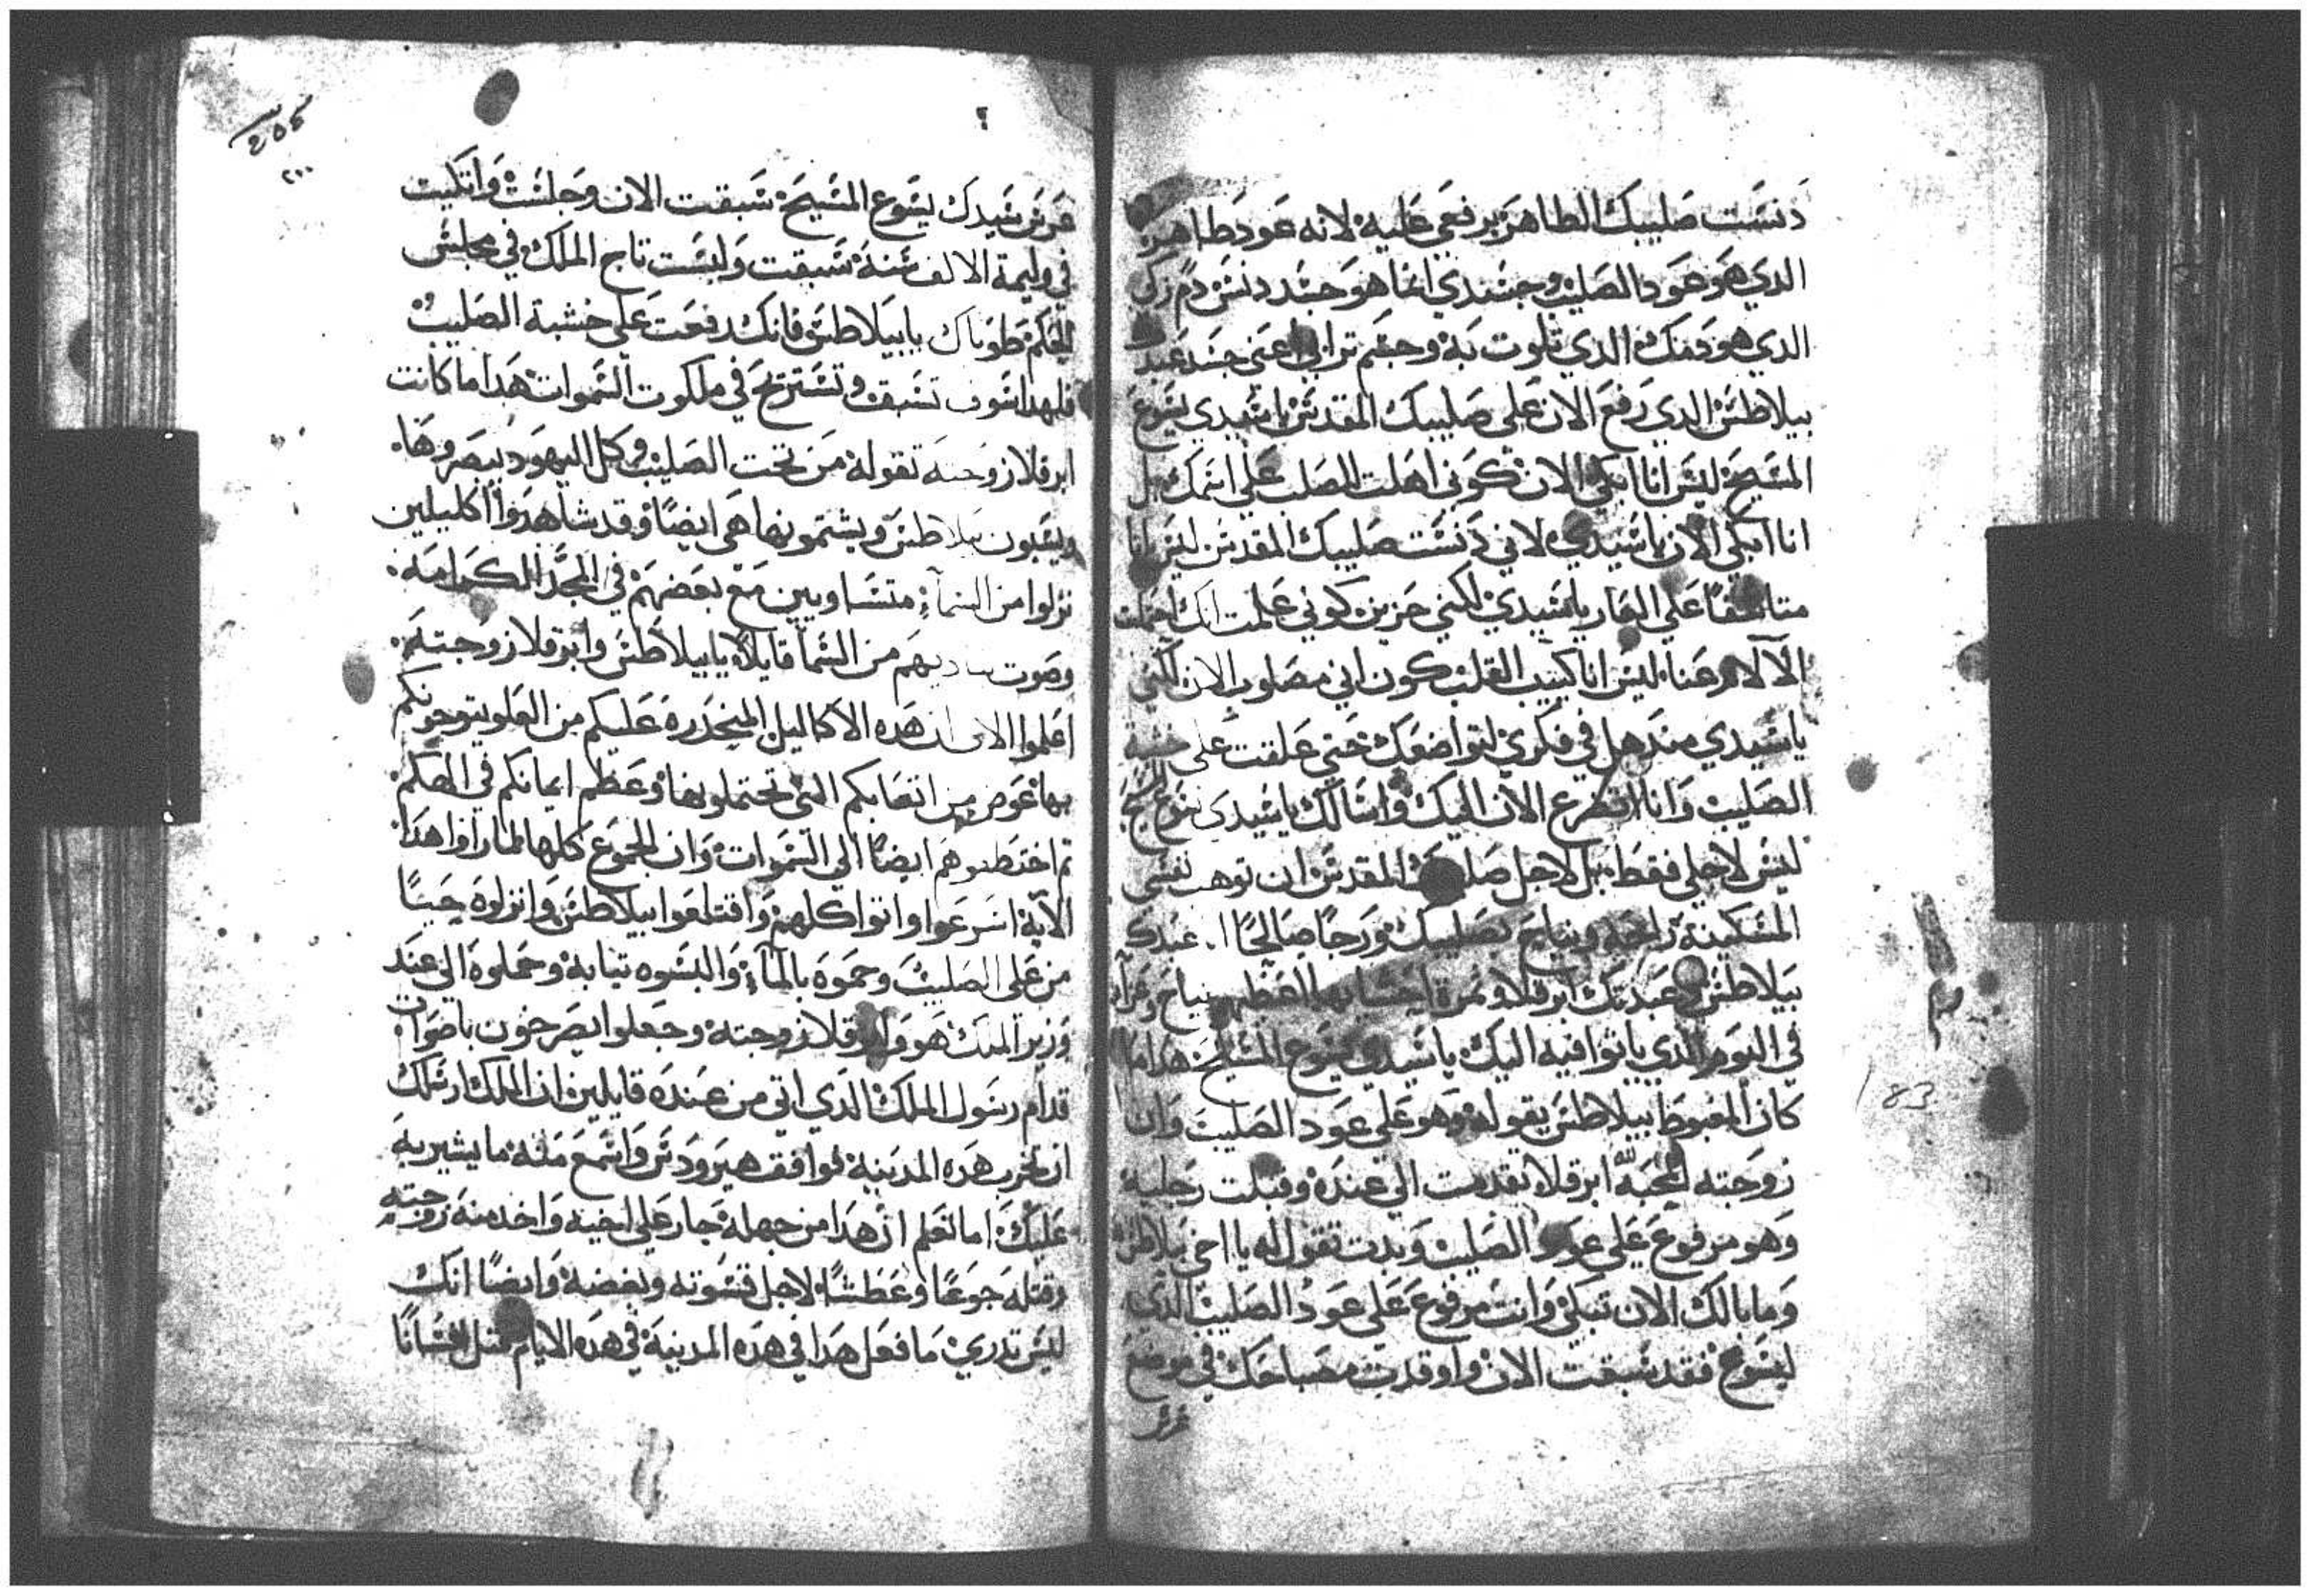 دنست صليبك الطاهر برفعي عليه لانه عود طاهر
الدي هو عود الصليب وجسدي انما هو جسد دنس دم زكي
الدي هو دمك الدي تلوت به وجسم ترابي اعني جسد عبدك
بيلاطس الدي رفع الان علي صليبك المقدس يا سيدي يسوع
المسيح ليس انا ابكي الان كوني اهلت الصلب علي اسمك بل
انا ابكي الان يا سيدي لاني دنست صليبك المقدس ليس انا
علي العار يا سيدي لكني حزين كوني علمت انك احتملت
الالام عنا ليس انا كييب القلب كون اني مصلوب الان لكني
يا سيدي مندهل في فكري لتواضعك حتي علقت علي خشبة
الصليب وانا اتضرع الان اليك واسالك يا سيدي يسوع المسيح
ليس لاجلي فقط بل لاجل صليبك المقدس ان توهب نفسي
المسكينة راحه ونياح بصليبك ورجا صالحا عبدك
بيلاطس وعبدتك ابرقلا وتمرة احشايهما اعظيهم نياح وعزآء
في اليوم الدي ياتوا فيه اليك يا سيدي يسوع المسيح هدا ما
كان المغبوط بيلاطس يقوله وهو علي عود الصليب وان
زوجته المحبه لله ابرقلا تقدمت الي عنده وقبلت رجليه
وهو مرفوع علي عود الصليب وبدت تقول له يا اخي بيلاطس
وما بالك الان تبكي وانت مرفوع علي عود الصليب الدي
ليسوع فقد سبقت الان واوقدت مصباحك في موضع
عرس
183
205
٢٠٠
عرس سيدك يسوع المسيح سبقت الان وجلست واتكيت
في وليمة الالف سنة سبقت ولبست تاج الملك في مجلس
الحكم طوباك يا بيلاطس فانك رفعت علي خشبة الصليب
فلهدا سوف تسبق وتستريح في ملكوت السموات هدا ما كانت
ابرقلا زوجته تقوله من تحت الصليب وكل اليهود يبصروها
ويسبون بيلاطس ويشتمونها هي ايضا وقد شاهدوا اكليلين
نزلوا من السمآء متساويين مع بعضهم في المجد والكرامه
وصوت يناديهم من السما قايلا يا بيلاطس وابرقلا زوجته
اعلموا الان ان هده الاكاليل المنحدره عليكم من العلو يتوجونكم
بها عوض من اتعابكم التي تحتملونها وعظم ايمانكم في الحكم
تم اختطفوهم ايضا الي السموات وان الجموع كلها لما راوا هدا
الآية اسرعوا واتوا كلهم واقتلعوا بيلاطس وانزلوه حيا
من علي الصليب وحموه بالمآء والبسوه تيابه وحملوه الي عند
وزير الملك هو وابرقلا زوجته وجعلوا يصرخون باصوات
قدام رسول الملك الدي اتي من عنده قايلين ان الملك ارسلك
ان تخرب هده المدينة لموافقة هيرودس واسمع منه ما يشير به
عليك اما تعلم ان هدا من جهله جار علي اخيه واخد منه زوجته
وقتله جوعا وعطشا لاجل قسوته وبغضه وايضا انك
ليس تدري ما فعل هدا في هده المدينة في هده الايام قتل انسانا